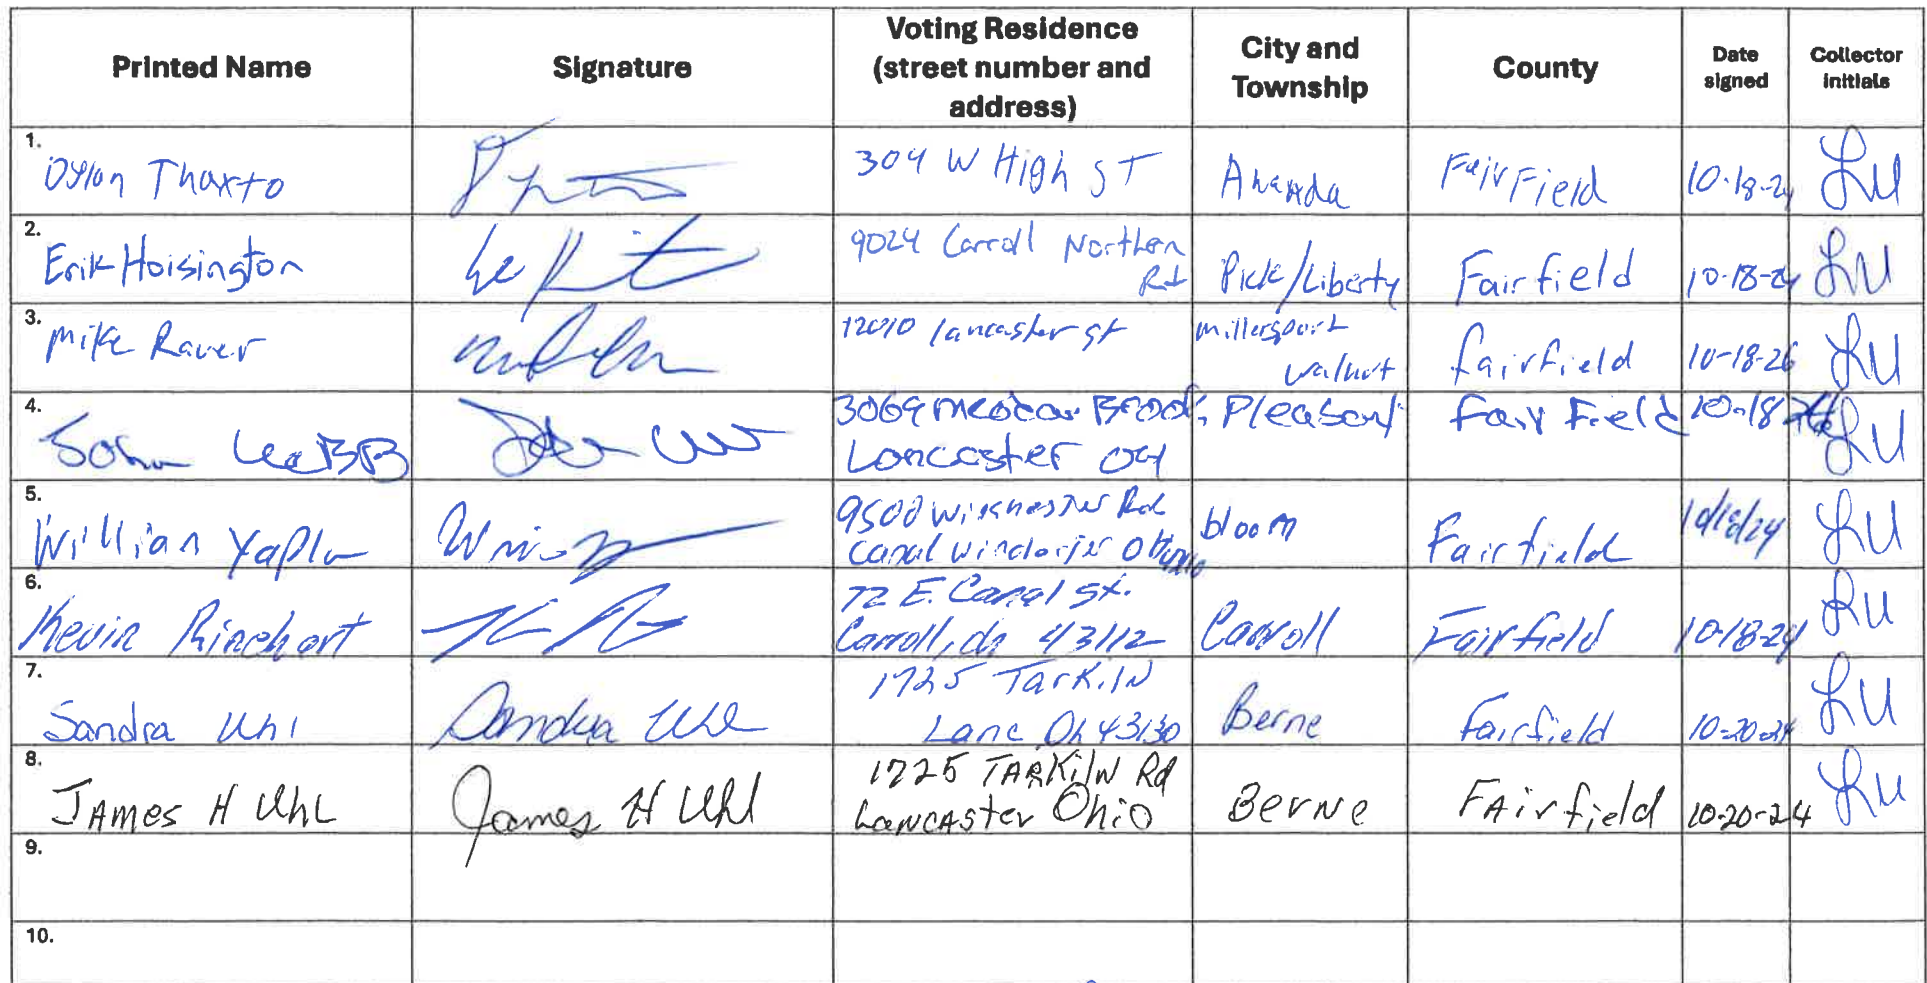 Printed Name
Signature
Voting Residence
(street number and
address)
City and
Township
County
Date
signed
Collector
initials
1.
Dylon Thaxto
304 W High ST
Amanda
FairField
10-18-24
LU
2.
Erik Hoisington
9024 Carroll Northern
Rd
Pick/Liberty
Fairfield
10-18-24
LU
3.
Mike Raver
12010 lancaster st
millersport
walnut
fairfield
10-18-26
LU
4.
John WeBB
3069 Brook
Lancaster
Pleasant
FairField
10-18
LU
5.
Willian
9500 Rd
Canal
bloom
Fairfield
10/18/24
LU
6.
Kevin Rinehart
72 E. Canal st.
Carroll, oh 43112
Carroll
Fairfield
10-18-24
LU
7.
Sandra Uhl
Sandra Uhl
1725 Tarkiln
Lanc Oh 43130
Berne
Fairfield
10-20-24
LU
8.
JAmes H Uhl
James H Uhl
1725 TARKilN Rd
LaNCASter Ohio
BerNe
FAirfield
10-20-24
LU
9.
10.